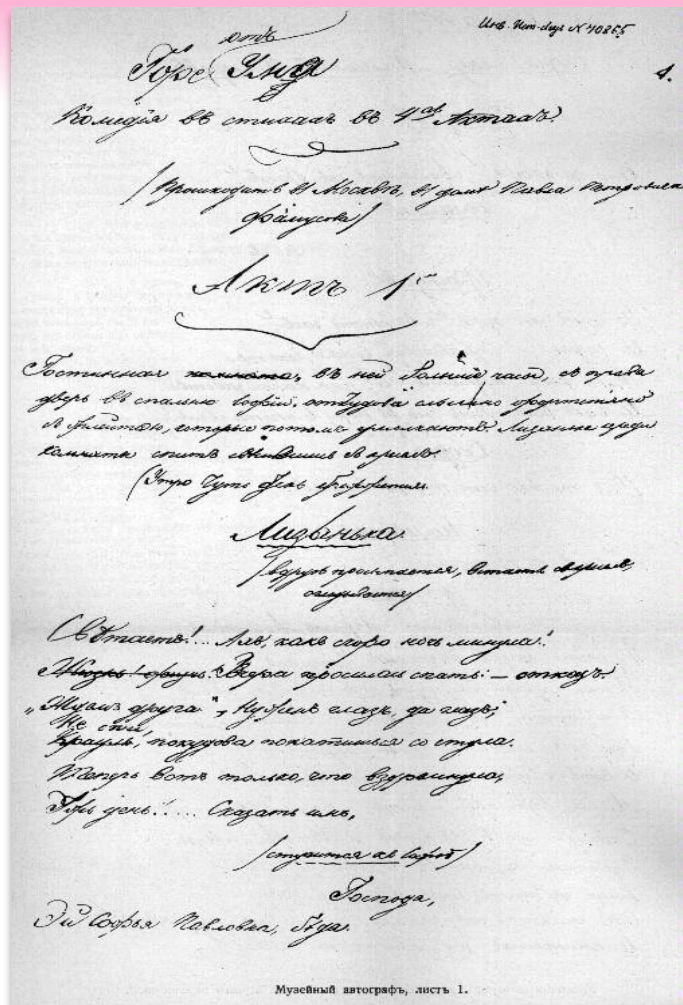 Инв. Ист. Муз № 40265
1.
отъ
Горе Ума
Комедія въ стихахъ въ 4хъ Актахъ.
/ Происходитъ въ Москвѣ, въ домѣ Павла Петровича
Фамусова /
Актъ 1й
Гостинная комната, въ ней большие часы, съ права
дверь въ спальню Софии, откудова слышно фортепіяно
съ флейтою, которые потомъ умолкаютъ. Лизанька среди
комнаты спитъ свѣсившись съ креселъ.
(Утро чуть день брежжитъ.
Лизанька.
/ вдругъ просыпается, встаетъ съ креселъ,
оглядывается /
Свѣтаетъ!... Ахъ, какъ скоро ночь минула!
Вчера просилась спать: — отказъ.
„Ждемъ друга", Нуженъ глазъ, да глазъ;
Не спи,
покудова покатишься со стула.
Теперь вотъ только, что вздремнула,
Ужъ день!.... Сказать имъ,
/ стучится къ Софьѣ /
Господа,
Эй Софья Павловна, бѣда.
Музейный автографъ, листъ 1.